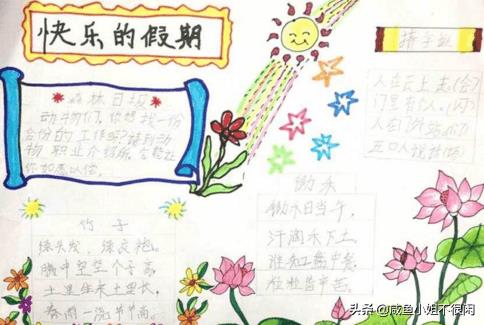 快乐的假期
森林日报
动物们，你想找一份
合适的工作吗？请到动
物职业介绍所，会帮在
你如愿以偿。
猜字谜
人在云上走(会)
门里有人(闪)
竹子
绿头发，绿衣袍。
腹中空空个子高，
土里生来土里长，
春雨一浇节节高。
锄禾
锄禾日当午，
汗滴禾下土。
谁知盘中餐，
粒粒皆辛苦。
头条 @咸鱼小姐不很闲